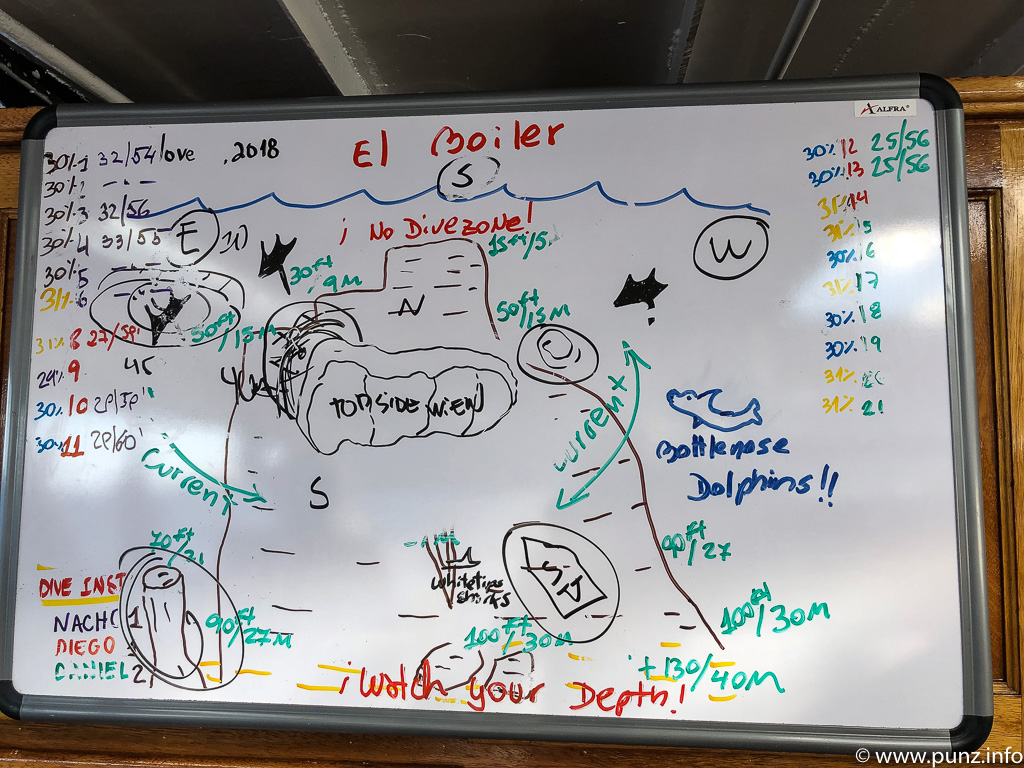 ALFRA®
El Boiler
S
30% 1 32/54 love , 2018
30% 2
30% 3 32/56
30% 4 33/55
30% 5
31% 6
31% 8 27/59
29% 9
30% 10
30% 11
45
30% 12 25/56
30% 13 25/56
31% 14
15
30% 16
31% 17
30% 18
30% 19
31% 20
31% 21
E
W
¡ No Dive zone!
15ft/5
30ft/9M
N
50ft/15M
50ft/15M
TOP SIDE VIEW
current
current
S
Bottlenose
Dolphins!!
70ft/21
90ft/27M
90ft/27
whitetips
sharks
100ft/30M
100ft/30M
+130/40M
DIVE INST
NACHO 1
DIEGO
DANIEL 2
¡Watch your Depth!
© www.punz.info